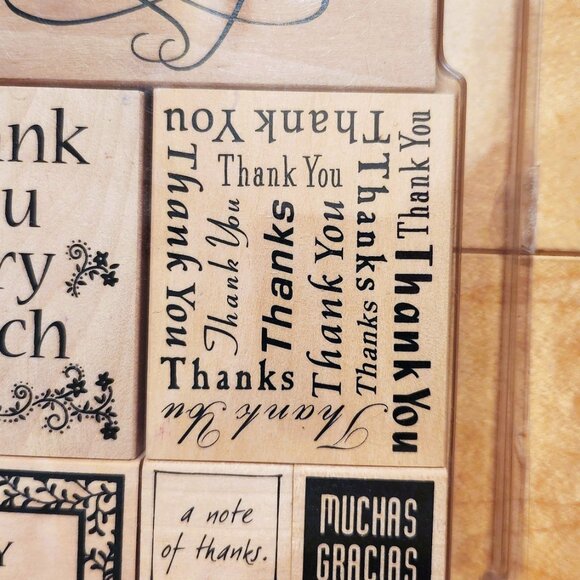 ank
u
ry
ch
Thank You
Thank You
Thank You
Thank You
Thanks
Thank You
Thanks
Thanks
Thank You
Thank You
Thanks
Thank You
Y
a note
of thanks.
MUCHAS
GRACIAS